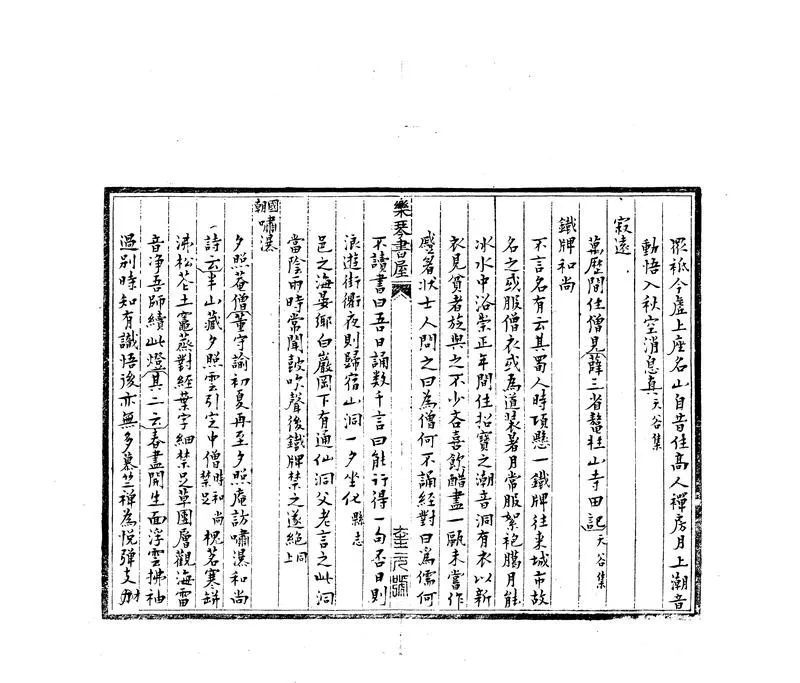 眾祗今虛上座名山自昔住高人禪房月上潮音
動悟入秋空消息真天谷集
寂遠
萬歷間住僧見薛三省鼇柱山寺田記天谷集
鐵牌和尚
不言名有云其蜀人時項懸一鐵牌往來城市故
名之或服僧衣或為道裝暑月常服絮袍臘月能
冰水中浴崇正年間住招寶之潮音洞有衣以新
衣見貧者旋與之不少吝喜飲醋盡一甌未嘗作
蹙著狀士人問之曰為僧何不誦經對曰為儒何
樂琴書屋
不讀書曰吾日誦數千言曰能行得一句否日則
浪遊街衢夜則歸宿山洞一夕坐化縣志
邑之海晏鄉白巖岡下有通仙洞父老言之此洞
當陰雨時常聞鼓吹聲後鐵牌禁之遂絕同上
國朝嘯瀑
夕照菴僧董守諭初夏再至夕照庵訪嘯瀑和尚
詩云半山藏夕照雲引定中僧時和尚禁足槐茗寒缽
沸松花土竈蒸對經葉字細禁足草團層觀海雷
音淨吾師續此燈其二云春盡開生面浮雲拂袖
過別時知有識悟後亦無多慕竺禪為悅彈支